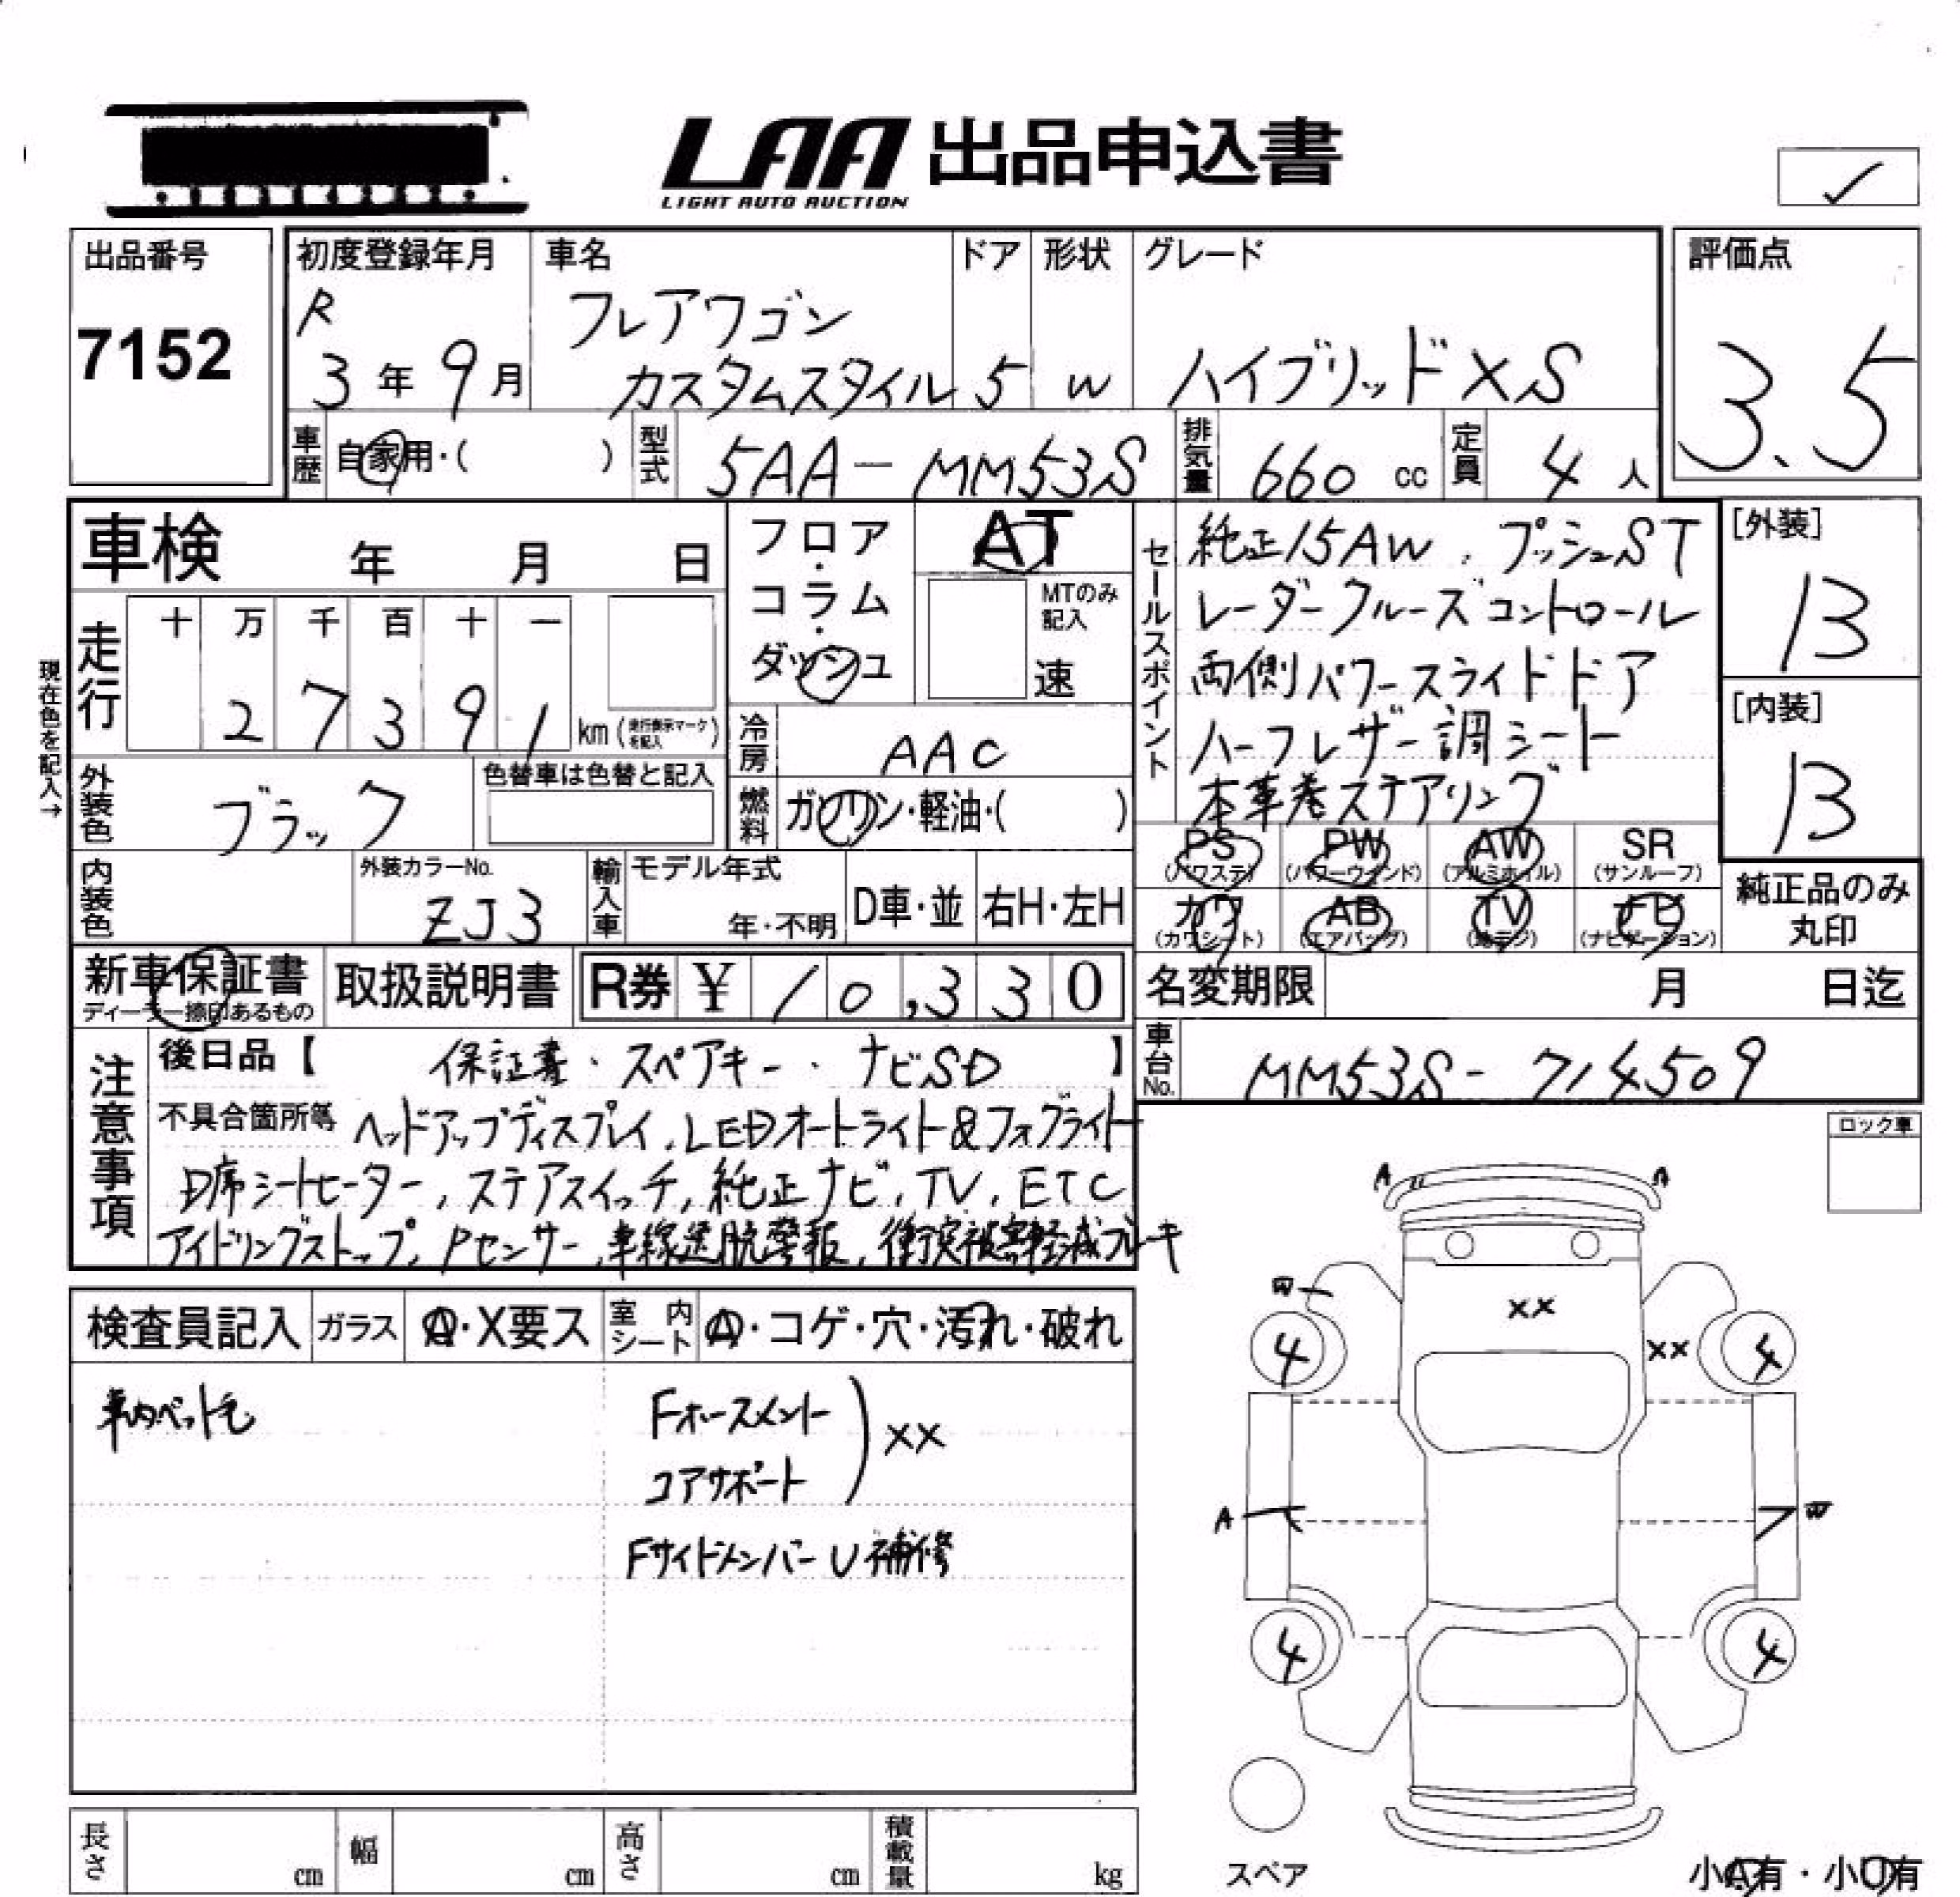 LAA 出品申込書
LIGHT AUTO AUCTION
✓
出品番号
7152
初度登録年月
R
3年 9月
車名
フレアワゴン
カスタムスタイル
ドア
5
形状
W
グレード
ハイブリッドXS
評価点
3.5
車歴
自家用・( )
型式
5AA-MM53S
排気量
660 cc
定員
4人
車検 年 月 日
現在色を記入→
走行
十 万 千 百 十 一
2 7 3 9 1 km (走行表示マークを記入)
フロア・コラム・ダッシュ
AT
MTのみ記入
速
冷房
AAC
燃料
ガソリン・軽油・( )
外装色
ブラック
色替車は色替と記入
内装色
外装カラーNo.
ZJ3
輸入車
モデル年式
年・不明
D車・並
右H・左H
セールスポイント
純正15AW.プッシュST
レーダークルーズコントロール
両側パワースライドドア
ハーフレザー調シート
本革巻ステアリング
[外装]
13
[内装]
13
PS (パワステ)
PW (パワーウインド)
AW (アルミホイル)
SR (サンルーフ)
カワ (カワシート)
AB (エアバッグ)
TV (地デジ)
ナビ (ナビゲーション)
純正品のみ丸印
新車保証書
ディーラー捺印あるもの
取扱説明書
R券 ¥ 10,330
名変期限 月 日迄
車台No.
MM53S-714509
注意事項
後日品【 保証書・スペアキー・ナビSD 】
不具合箇所等 ヘッドアップディスプレイ.LEDオートライト&フォグライト
D席シートヒーター,ステアスイッチ,純正ナビ,TV,ETC
アイドリングストップ,Pセンサー,車線逸脱警報,衝突被害軽減ブレーキ
ロック車
検査員記入
ガラス
A・X要ス
室内シート
A・コゲ・穴・汚れ・破れ
車内ペット毛
Fホースメント
コアサポート
) XX
FサイドメンバーU補修
A A
W
XX
XX
4 4
A W
4 4
スペア
小A有・小U有
長さ cm
幅 cm
高さ cm
積載量 kg